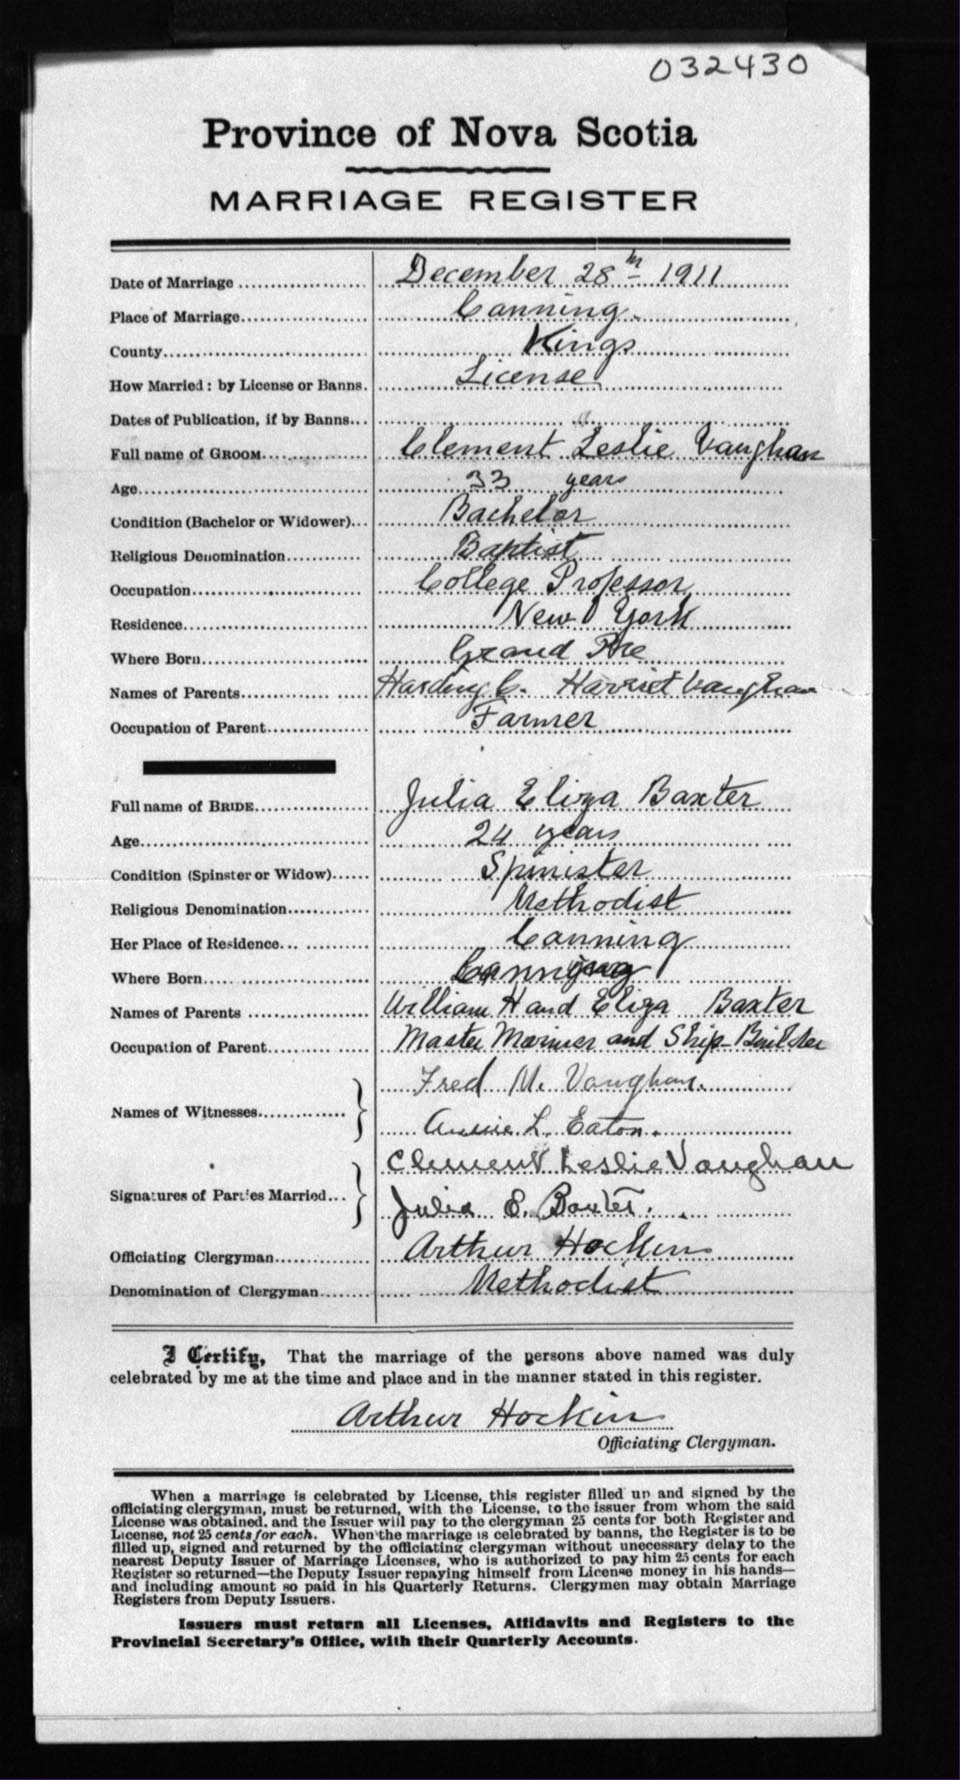 032430
Province of Nova Scotia
MARRIAGE REGISTER
Date of Marriage December 28th 1911
Place of Marriage Canning.
County Kings
How Married: by License or Banns. License
Dates of Publication, if by Banns
Full name of GROOM Clement Leslie Vaughan
Age 33 years
Condition (Bachelor or Widower) Bachelor
Religious Denomination Baptist
Occupation College Professor
Residence New York
Where Born Grand Pre
Names of Parents Harding C. Harriet Vaughan
Occupation of Parent Farmer
Full name of BRIDE Julia Eliza Baxter
Age 24 years
Condition (Spinster or Widow) Spinister
Religious Denomination Methodist
Her Place of Residence Canning
Where Born Canning
Names of Parents William H and Eliza Baxter
Occupation of Parent Master Mariner and Ship Builder
Fred M. Vaughan.
Names of Witnesses
Annie L. Eaton.
Clement Leslie Vaughan
Signatures of Parties Married
Julia E. Baxter.
Officiating Clergyman Arthur Hockin
Denomination of Clergyman Methodist
I Certify, That the marriage of the persons above named was duly
celebrated by me at the time and place and in the manner stated in this register.
Arthur Hockin
Officiating Clergyman.
When a marriage is celebrated by License, this register filled up and signed by the
officiating clergyman, must be returned, with the License, to the issuer from whom the said
License was obtained, and the Issuer will pay to the clergyman 25 cents for both Register and
License, not 25 cents for each. When the marriage is celebrated by banns, the Register is to be
filled up, signed and returned by the officiating clergyman without unecessary delay to the
nearest Deputy Issuer of Marriage Licenses, who is authorized to pay him 25 cents for each
Register so returned—the Deputy Issuer repaying himself from License money in his hands—
and including amount so paid in his Quarterly Returns. Clergymen may obtain Marriage
Registers from Deputy Issuers.
Issuers must return all Licenses, Affidavits and Registers to the
Provincial Secretary's Office, with their Quarterly Accounts.